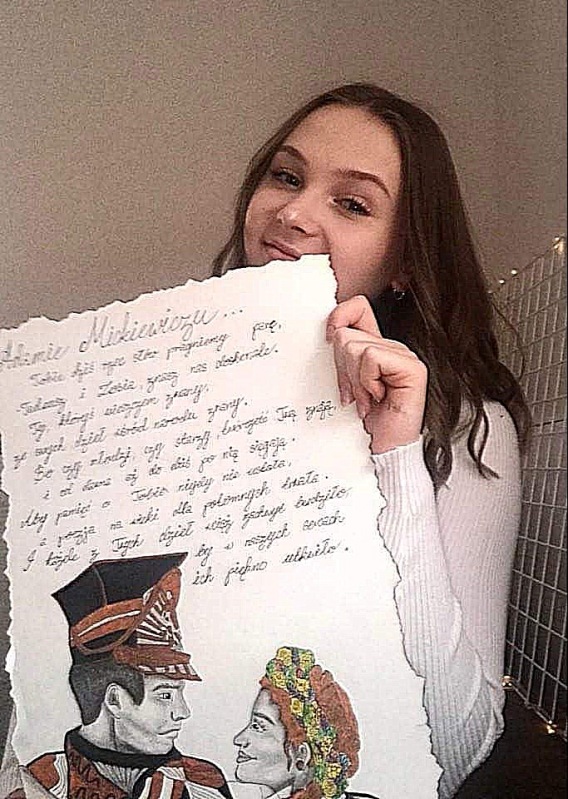 Adamie Mickiewiczu...
Tobie dziś rzec słów pragniemy parę,
Tadeusz i Zosia, znasz nas doskonale.
Ty, któryś wieszczem zwany,
ze swych dzieł wśród narodu znany.
Bo czy młodzi, czy starsi, twórczość Twą znają,
i od dawna aż do dziś po nią sięgają.
Aby pamięć o Tobie nigdy nie ustała,
a poezja na wieki dla potomnych trwała.
I każde z Twych dzieł wciąż zachwyt budziło,
by w naszych sercach
ich piękno utkwiło.